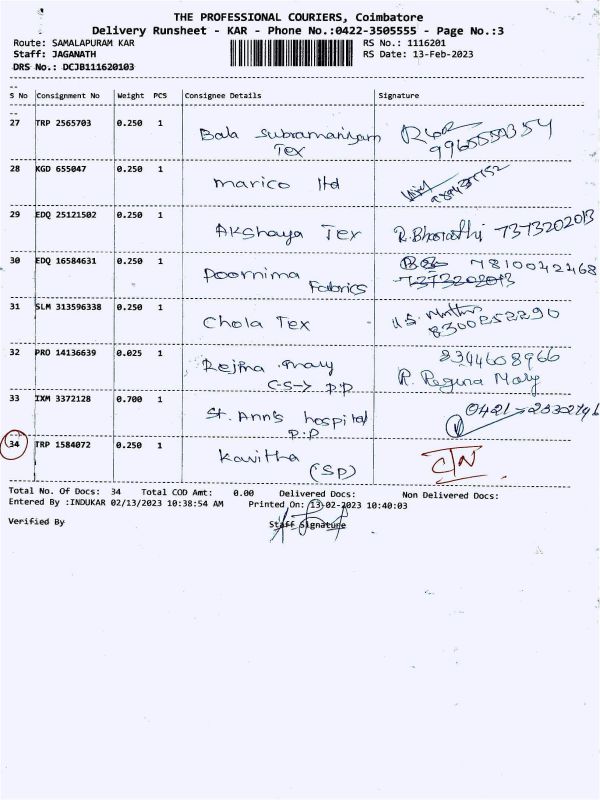 THE PROFESSIONAL COURIERS, Coimbatore
Delivery Runsheet - KAR - Phone No.:0422-3505555 - Page No.:3
Route: SAMALAPURAM KAR RS No.: 1116201
Staff: JAGANATH RS Date: 13-Feb-2023
DRS No.: DCJB111620103
S No Consignment No Weight PCS Consignee Details Signature
27 TRP 2565703 0.250 1 Bala Subramaniyam
Tex
28 KGD 655047 0.250 1 marico ltd
29 EDQ 25121502 0.250 1 Akshaya Tex R.Bharathi 7373202013
30 EDQ 16584631 0.250 1 Poornima Fabrics 7810042468
7373202013
31 SLM 313596338 0.250 1 Chola Tex
8300252290
32 PRO 14136639 0.025 1 Rejina mary 8344608966
C-S-> P.P R. Regina Mary
33 IXM 3372128 0.700 1 St. Ann's hospital
P.P
34 TRP 1584072 0.250 1 Kavitha
(SP)
Total No. Of Docs: 34 Total COD Amt: 0.00 Delivered Docs: Non Delivered Docs:
Entered By :INDUKAR 02/13/2023 10:38:54 AM Printed On: 13-02-2023 10:40:03
Verified By Staff Signature